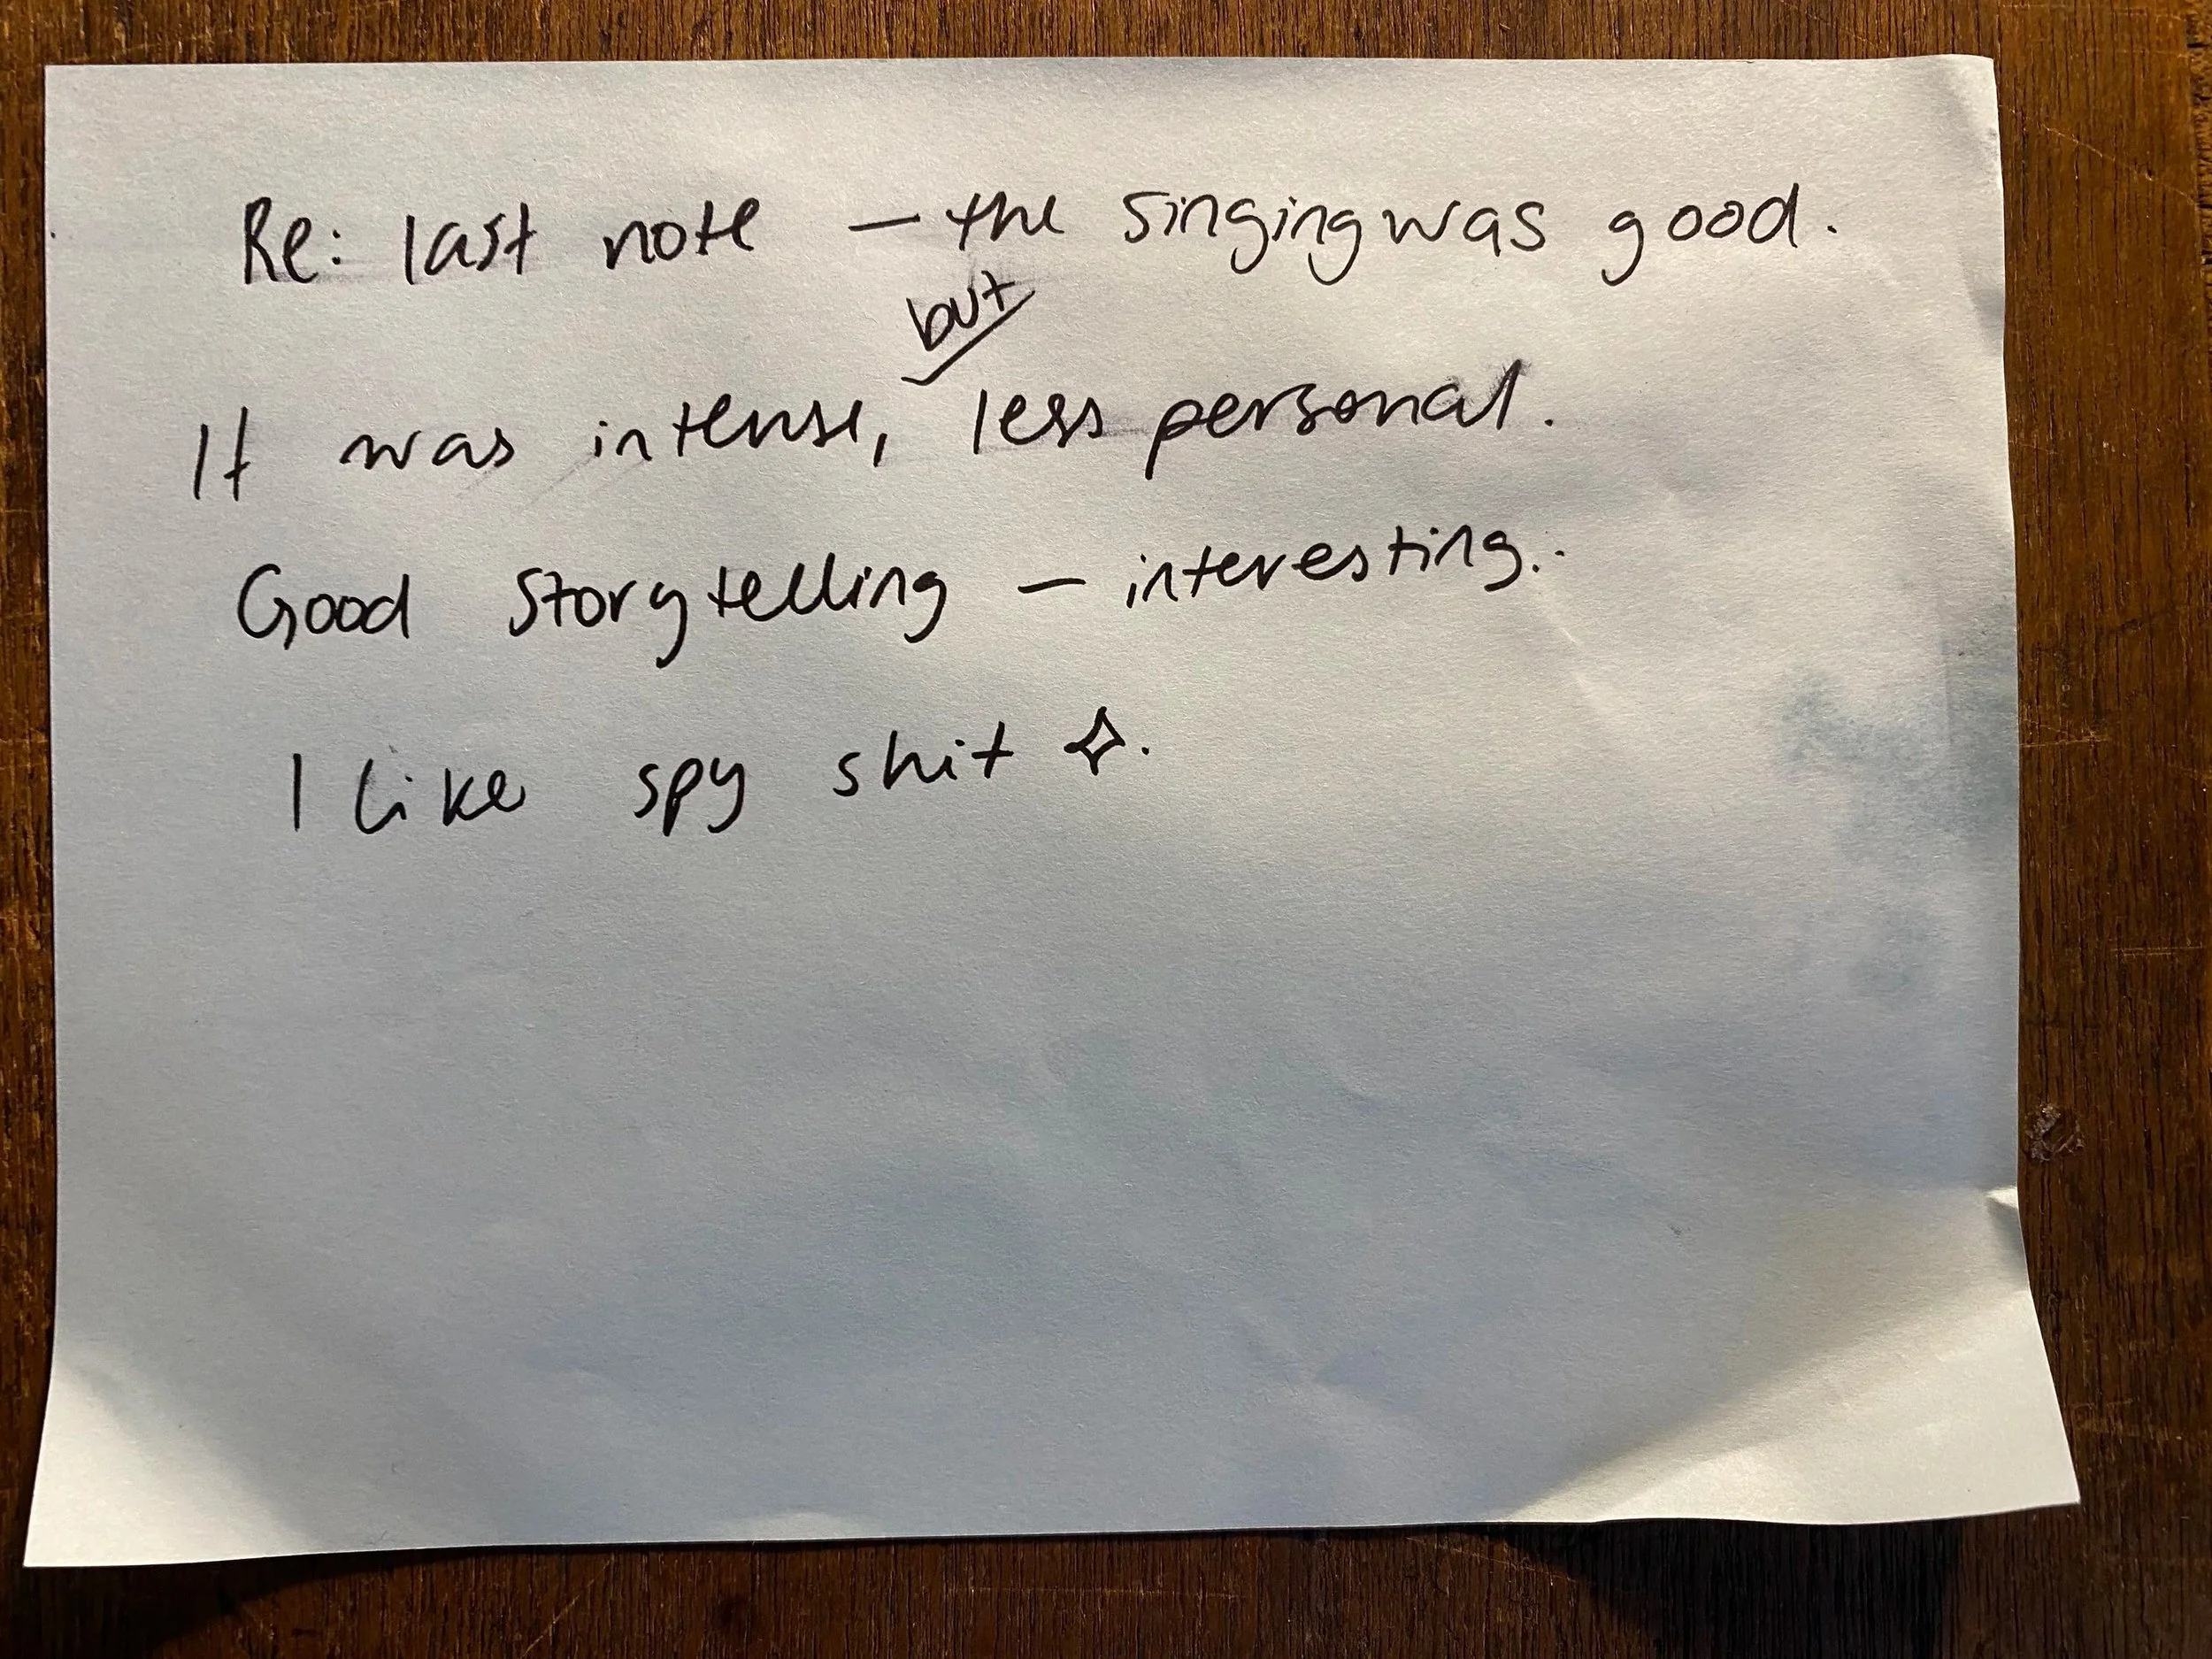 Re: last note — the singing was good.
It was intense, but less personal.
Good storytelling — interesting..
I like spy shit ✧.